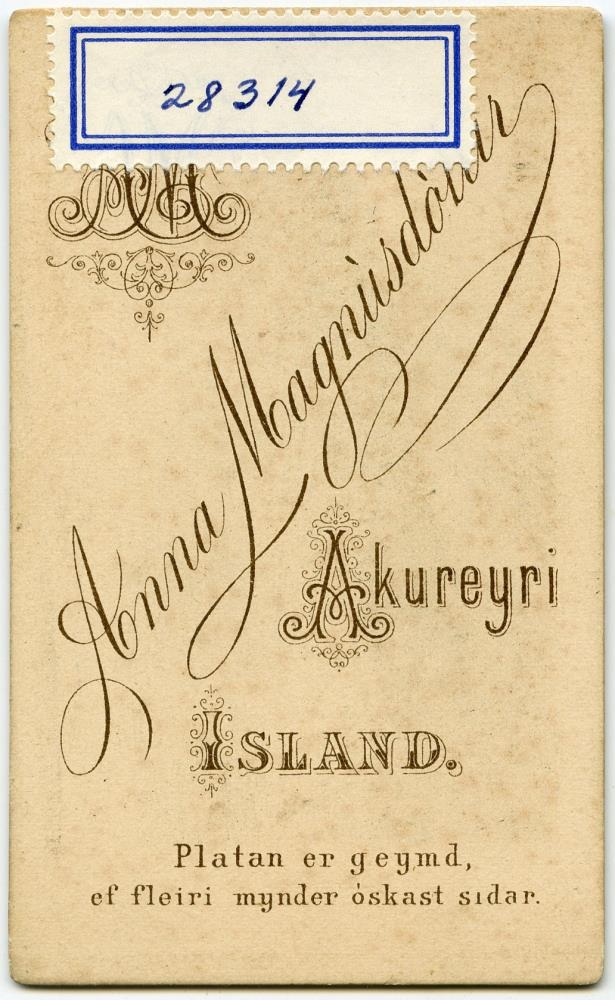 28314
AM
Anna Magnúsdóttir
Akureyri
ÍSLAND.
Platan er geymd,
ef fleiri mynder óskast sıdar.